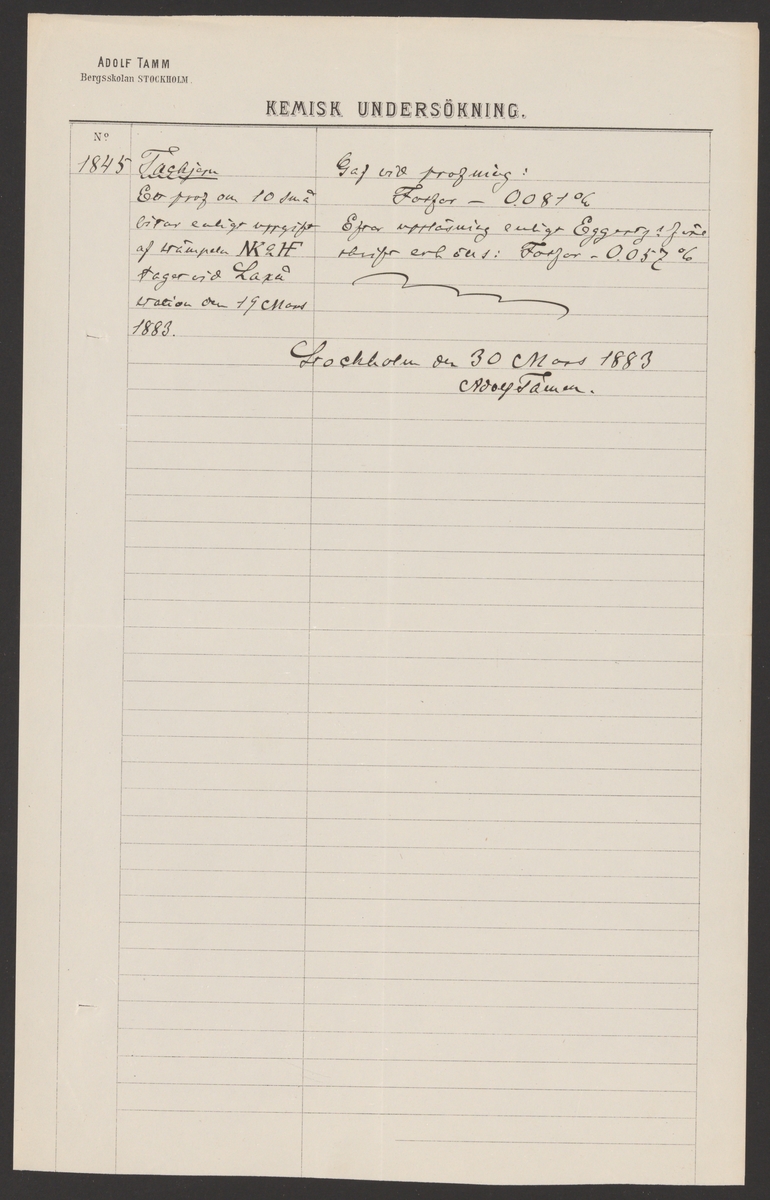 ADOLF TAMM
Bergsskolan STOCKHOLM.
KEMISK UNDERSÖKNING.
No
1845 Tackjern
Ett prof om 10 små
bitar enligt uppgift
af stämpeln
taget vid Laxå
station den 19 Mars
1883.
Gaf vid profning:
Fosfor – 0.081 %
Efter upplösning enligt Eggertz's före
skrift erhölls: Fosfor – 0.057 %
Stockholm den 30 Mars 1883
Adolf Tamm.